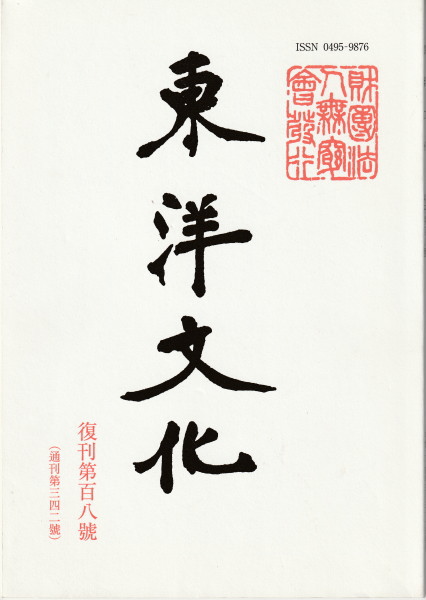 ISSN 0495-9876
財團法
人無窮
會發行
東洋文化
復刊第百八號
(通刊第三四二號)